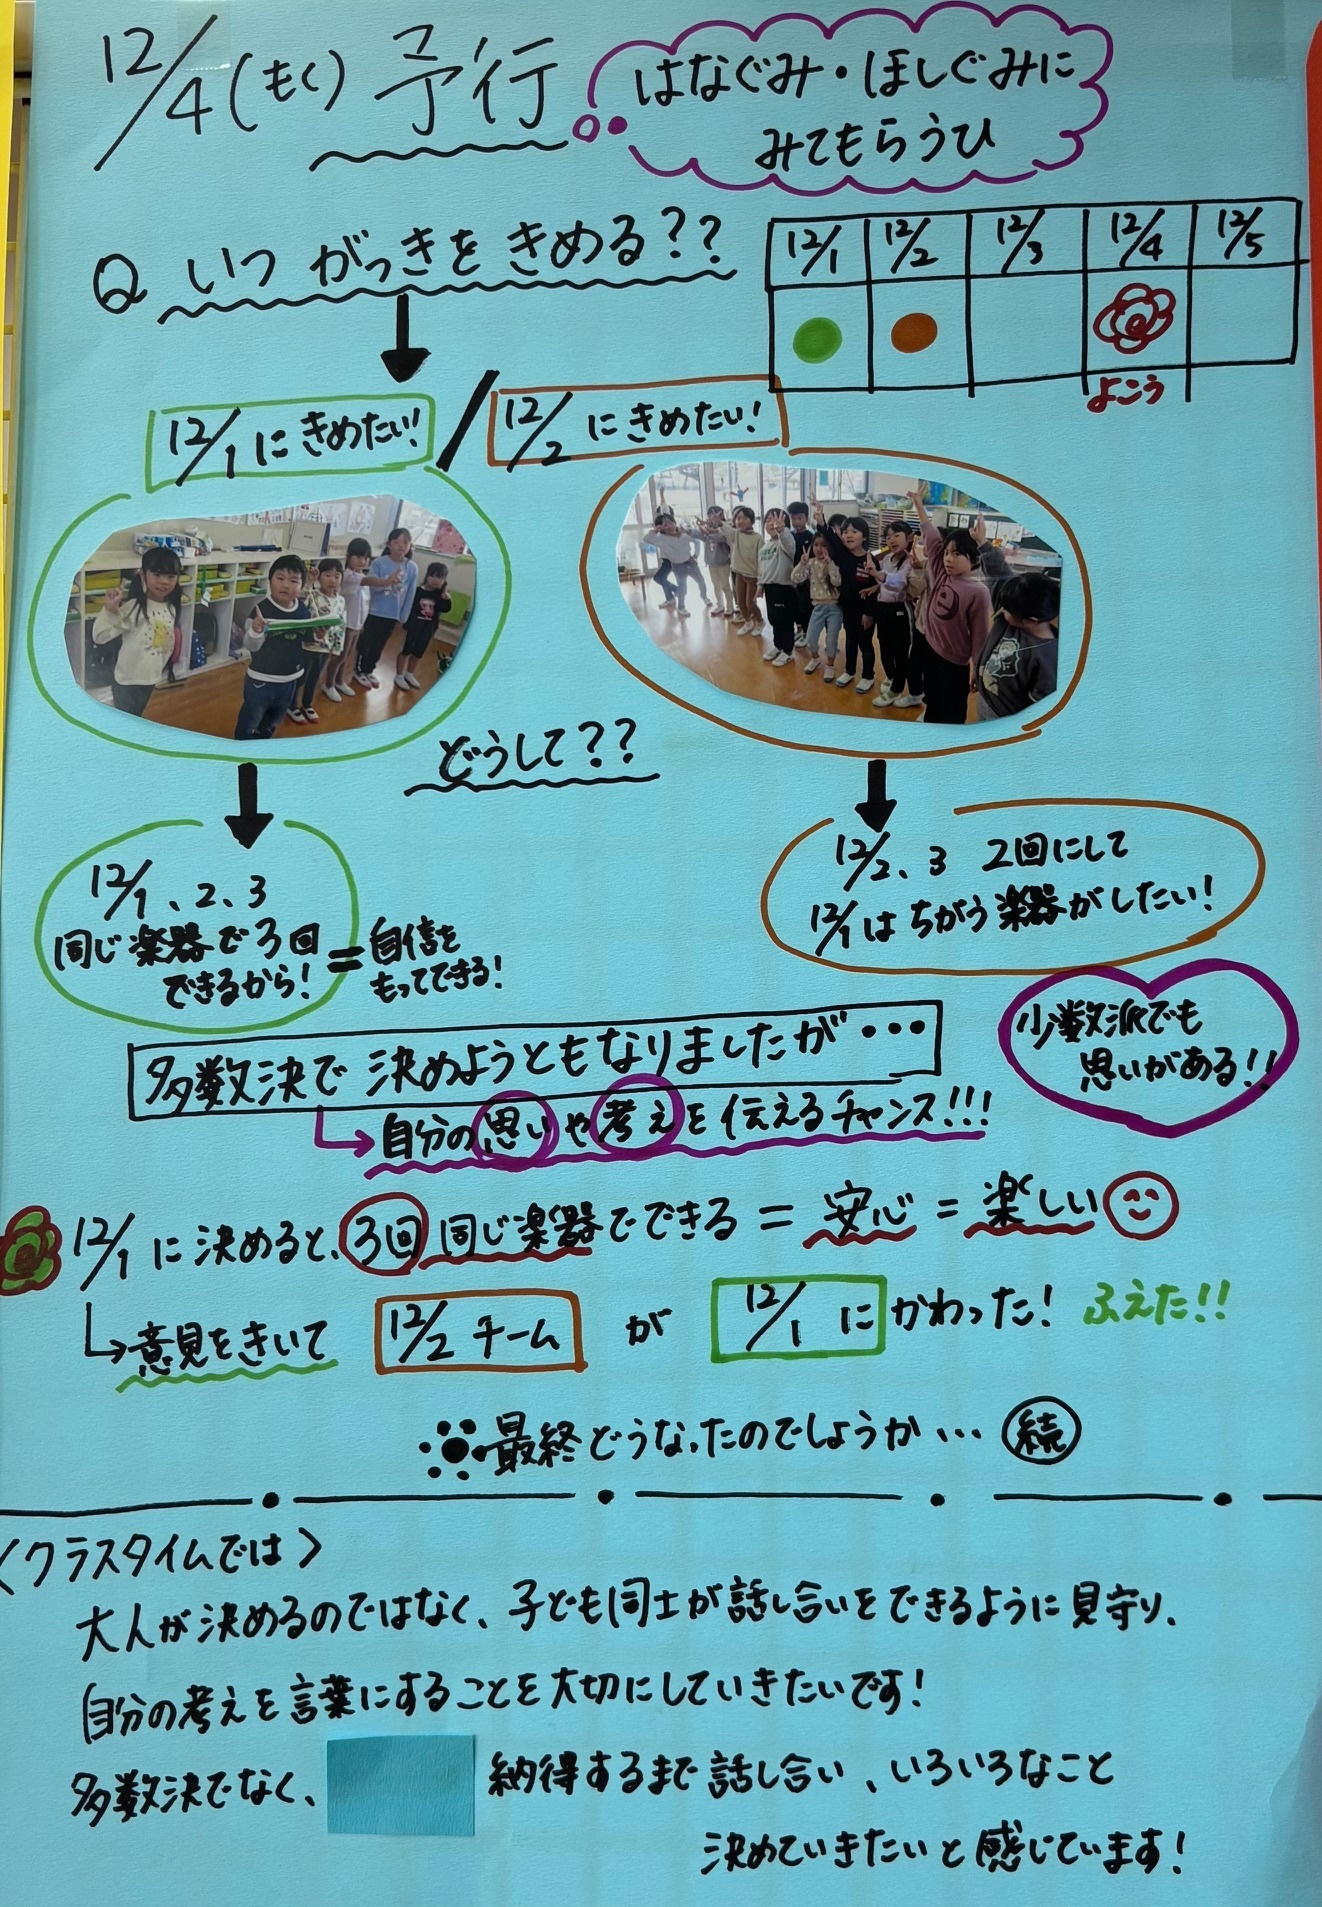 12/4(もく) 予行
はなぐみ・ほしぐみに
みてもらうひ
Q いつ がっきを きめる??
12/1 12/2 12/3 12/4 12/5
よこう
12/1 に きめたい! / 12/2 に きめたい!
どうして??
12/1、2、3
同じ楽器で3回
できるから!
= 自信を
もってできる!
12/2、3 2回にして
12/1は ちがう楽器がしたい!
少数派でも
思いがある!!
多数決で 決めようともなりましたが・・・
自分の思いや考えを伝えるチャンス!!!
12/1 に決めると、3回 同じ楽器でできる = 安心 = 楽しい
意見をきいて 12/2 チーム が 12/1 に かわった! ふえた!!
最終どうなったのでしょうか… 続
〈クラスタイムでは〉
大人が決めるのではなく、子ども同士が話し合いをできるように見守り、
自分の考えを言葉にすることを大切にしていきたいです!
多数決でなく、 納得するまで話し合い、いろいろなこと
決めていきたいと感じています!